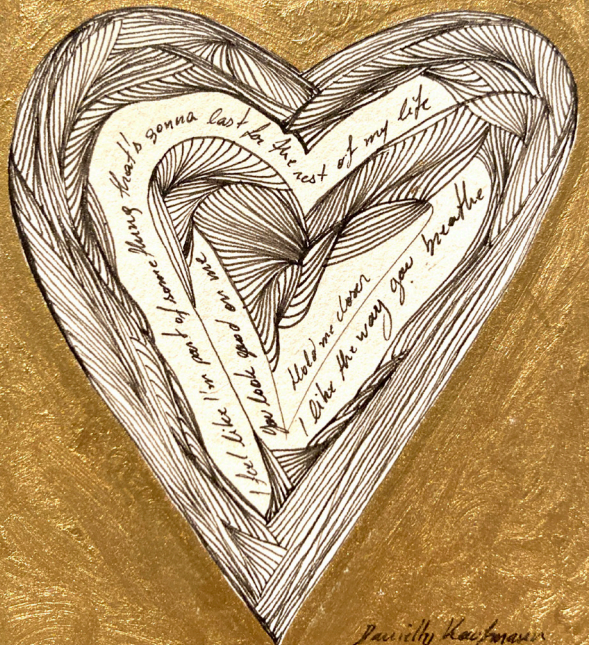 I feel like I'm part of something that's gonna last for the rest of my life
you look good on me
Hold me closer
I like the way you breathe
Danielly Kaufmann